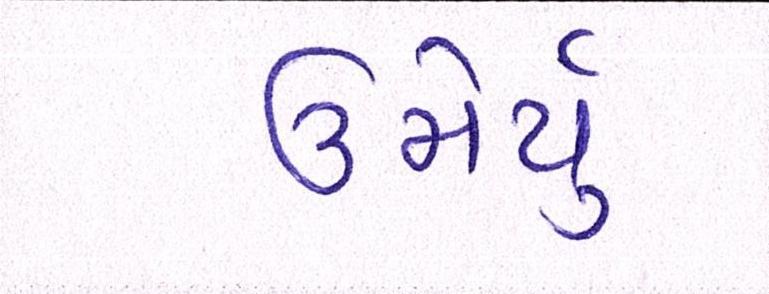 ઉમેર્યુ